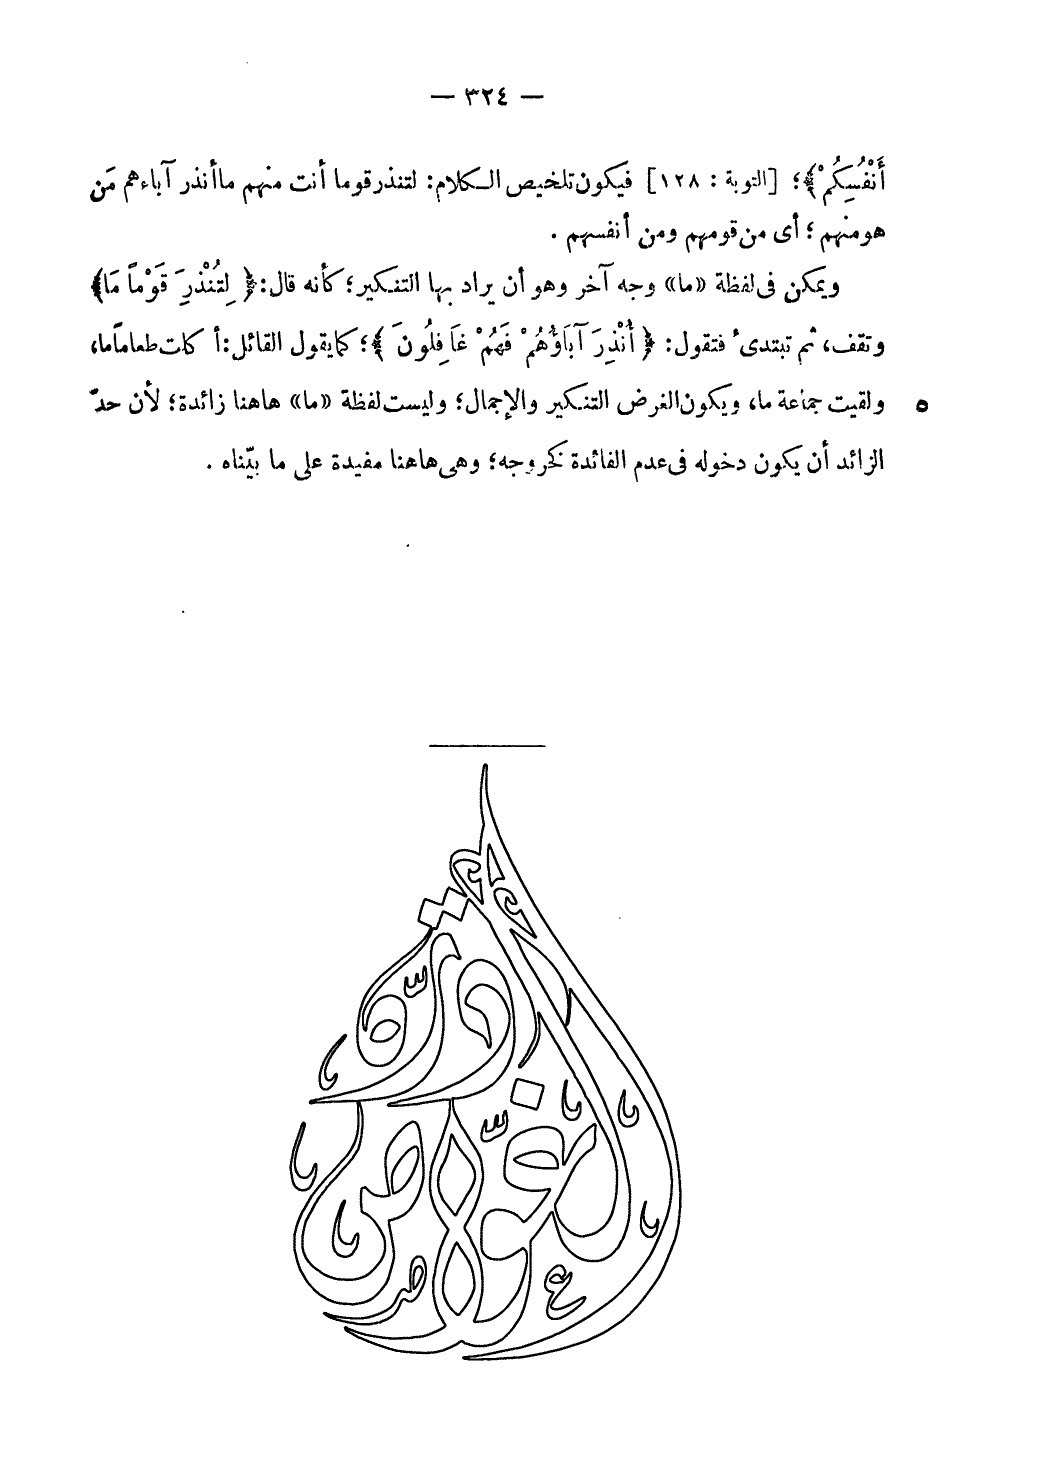 — ٣٢٤ —
أَنْفُسِكُمْ﴾؛ [التوبة : ١٢٨] فيكون تلخيص الكلام: لتنذر قوما أنت منهم ما أنذر آباءهم مَن
هو منهم ؛ أى من قومهم ومن أنفسهم .
ويمكن فى لفظة «ما» وجه آخر وهو أن يراد بها التنكير؛ كأنه قال: ﴿ لِتُنْذِرَ قَوْماً مَا﴾
وتقف، ثم تبتدئ فتقول: ﴿ أُنْذِرَ آبَاؤُهُمْ فَهُمْ غَافِلُونَ ﴾؛ كما يقول القائل: أكلت طعاماً ما،
ولقيت جماعة ما، ويكون الغرض التنكير والإجمال؛ وليست لفظة «ما» هاهنا زائدة؛ لأن حدّ ٥
الزائد أن يكون دخوله فى عدم الفائدة كخروجه؛ وهى هاهنا مفيدة على ما بيّناه .